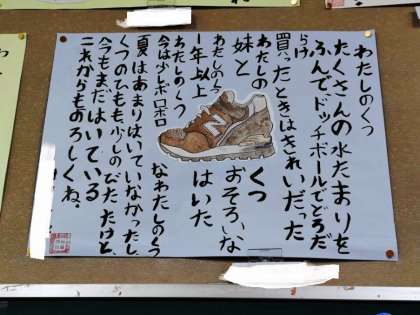 わたしのくつ
たくさんの水たまりを
ふんでドッチボールでどろだ
らけ
買ったときはきれいだった
わたしの くつ
妹と おそろいな
わたしのくつ
1年以上 はいた
わたしのくつ
今は少しボロボロ なわたしのくつ
夏はあまりはいていなかったし、
くつのひもも少しのびたけど、
今もまだはいている
これからもよろしくね。
N